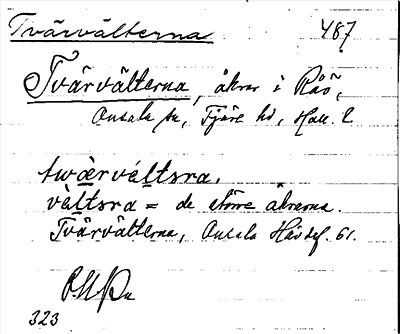 Tvärvälterna 487
Tvärvälterna, åkrar i Råö,
Onsala sn, Fjäre hd, Hall. l.
twærvéltsra.
vèltsra = de större åkrarna.
Tvärvälterna, Onsala Häv def. 61.
323